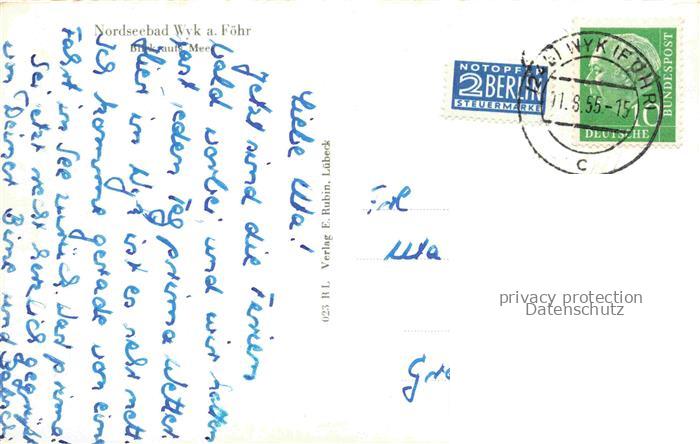 Nordseebad Wyk a. Föhr
Blick aufs Meer
Liebe Uta!
Jetzt sind die Ferien
bald vorbei und wir hatten
fast jeden Tag prima Wetter.
Hier in Wyk ist es sehr nett
Ich komme gerade von einer
Fahrt in See zurück. War prima!
Sei jetzt recht herzlich gegrüßt
von Deiner
und
023 RL Verlag E. Rubin, Lübeck
NOTOPFER
2 BERLIN
STEUERMARKE
WYK (FÖHR)
11.8.55-15
c
10
DEUTSCHE
BUNDESPOST
Frl
Uta
privacy protection
Datenschutz